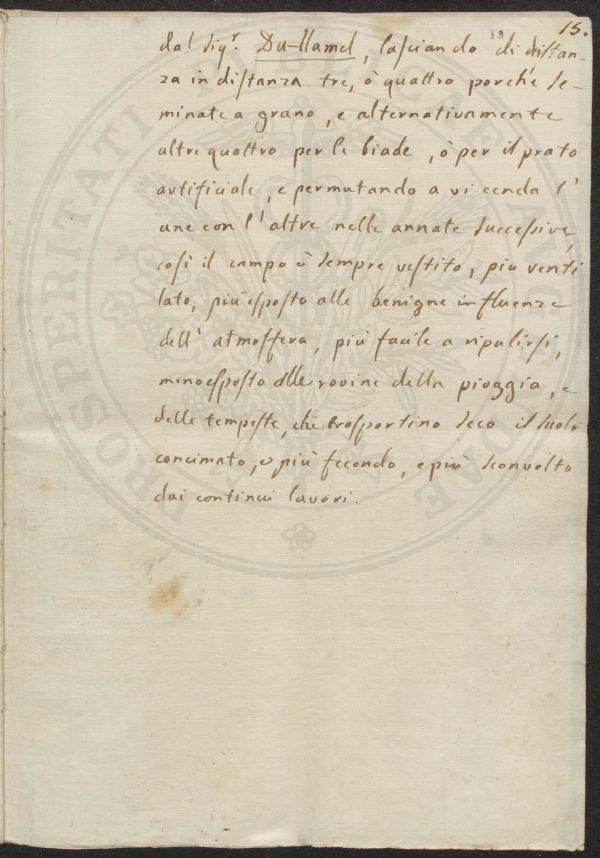 19 15.
dal Sigr. Du-Hamel, lasciando di distan-
za in distanza tre, ò quattro porche se-
minate a grano, e alternativamente
altre quattro per le biade, ò per il prato
artificiale, e permutando a vi cenda l'
une con l'altre nelle annate successive,
così il campo è sempre vestito, piu venti
lato, più esposto alle benigne influenze
dell' atmosfera, più facile a ripulirsi,
meno esposto alle rovine della pioggia, e
delle tempeste, che trosportino seco il suolo
concimato, e più fecondo, e più sconvolto
dai continui lavori.
PROSPERITATI PUBLICAE AUGENDAE